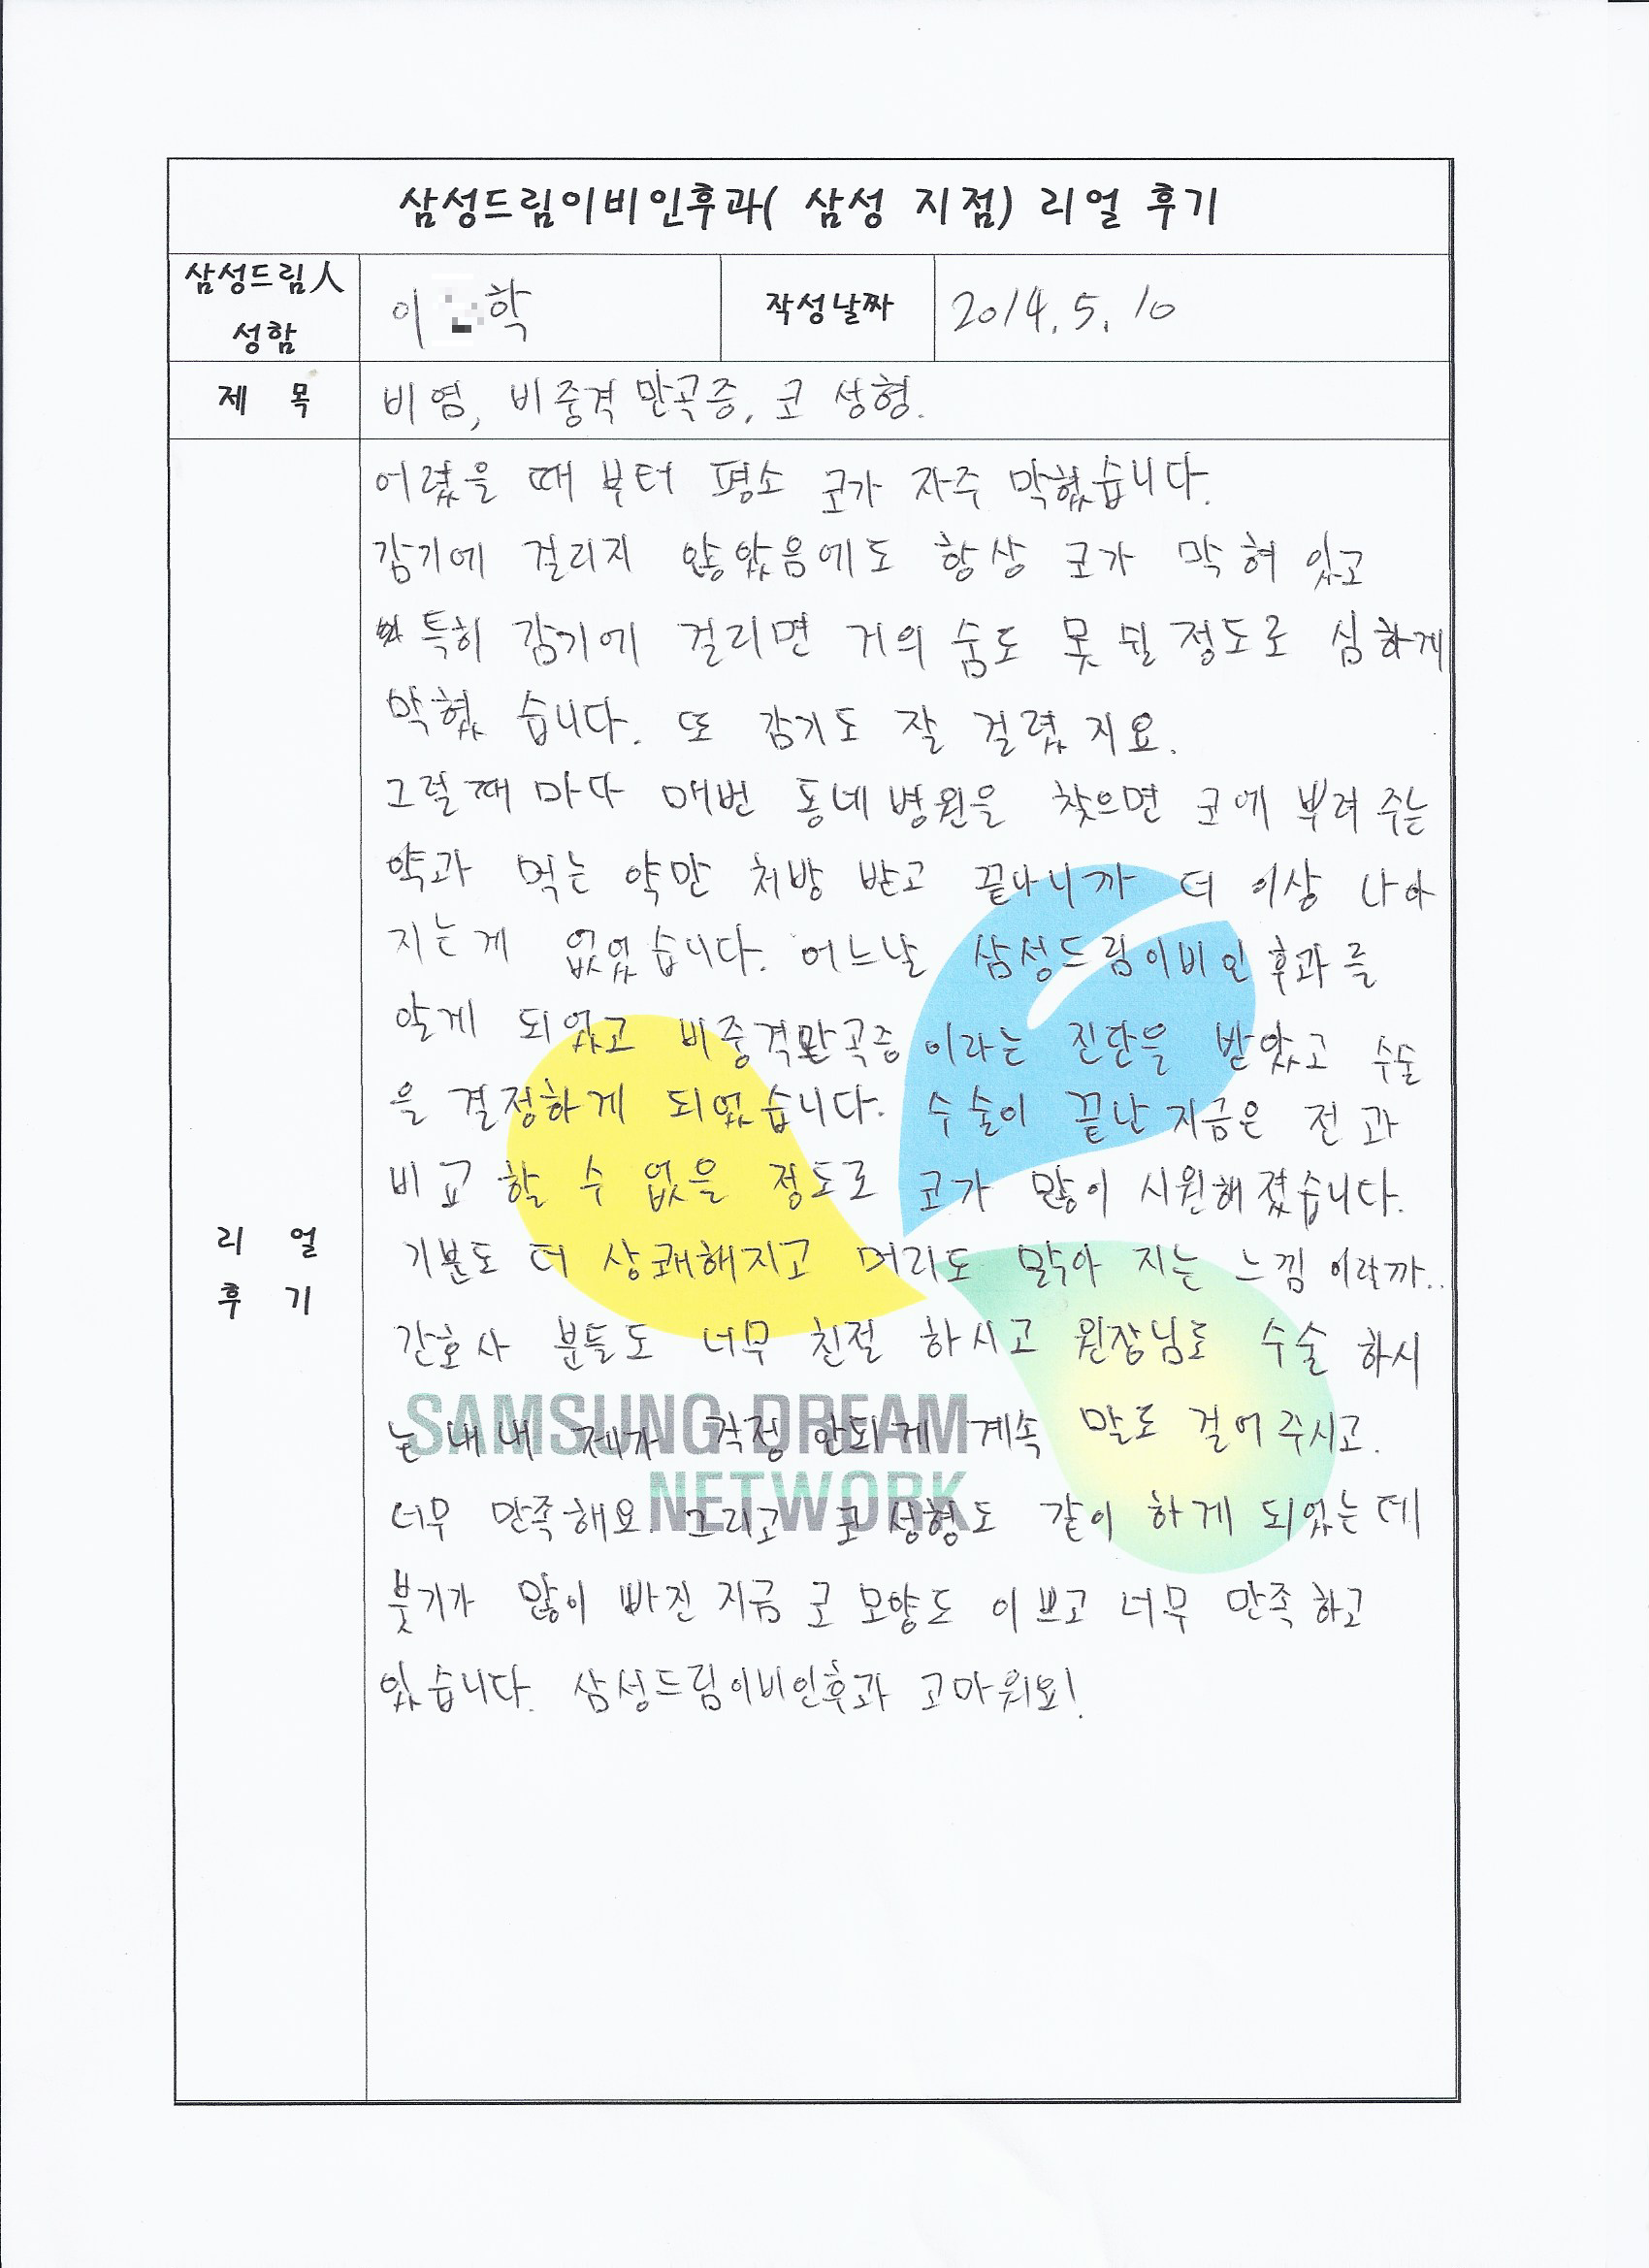 삼성드림이비인후과( 삼성 지점) 리얼 후기
삼성드림人
성함
이 학
작성날짜
2014. 5. 10
제 목
비염, 비중격 만곡증, 코 성형.
어렸을 때 부터 평소 코가 자주 막혔습니다.
감기에 걸리지 않았음에도 항상 코가 막혀 있고
특히 감기에 걸리면 거의 숨도 못 쉴 정도로 심하게
막혔 습니다. 또 감기도 잘 걸렸 지요.
그럴때 마다 매번 동네 병원을 찾으면 코에 뿌려 주는
약과 먹는 약만 처방 받고 끝나니까 더 이상 나아
지는게 없었습니다. 어느날 삼성드림이비인후과를
알게 되었고 비중격만곡증 이라는 진단을 받았고 수술
을 결정하게 되었습니다. 수술이 끝난 지금은 전 과
비교 할 수 없을 정도로 코가 많이 시원해졌습니다.
기분도 더 상쾌해지고 머리도 맑아 지는 느낌 이랄까..
간호사 분들도 너무 친절 하시고 원장님도 수술 하시
는 내내 제가 걱정 안되게 계속 말도 걸어 주시고.
너무 만족해요. 그리고 코 성형도 같이 하게 되었는데
붓기가 많이 빠진 지금 코 모양도 이쁘고 너무 만족 하고
있습니다. 삼성드림이비인후과 고마워요!
리 얼
후 기
SAMSUNG DREAM
NETWORK